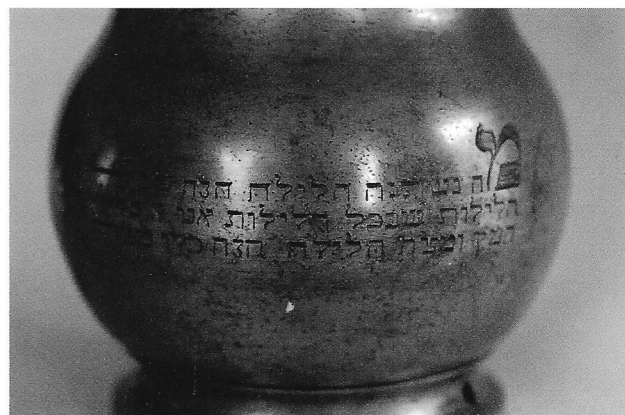 מה נשתנה הלילה הזה
הלילות שבכל הלילות אנו
חמץ ומצה הלילה הזה כלו